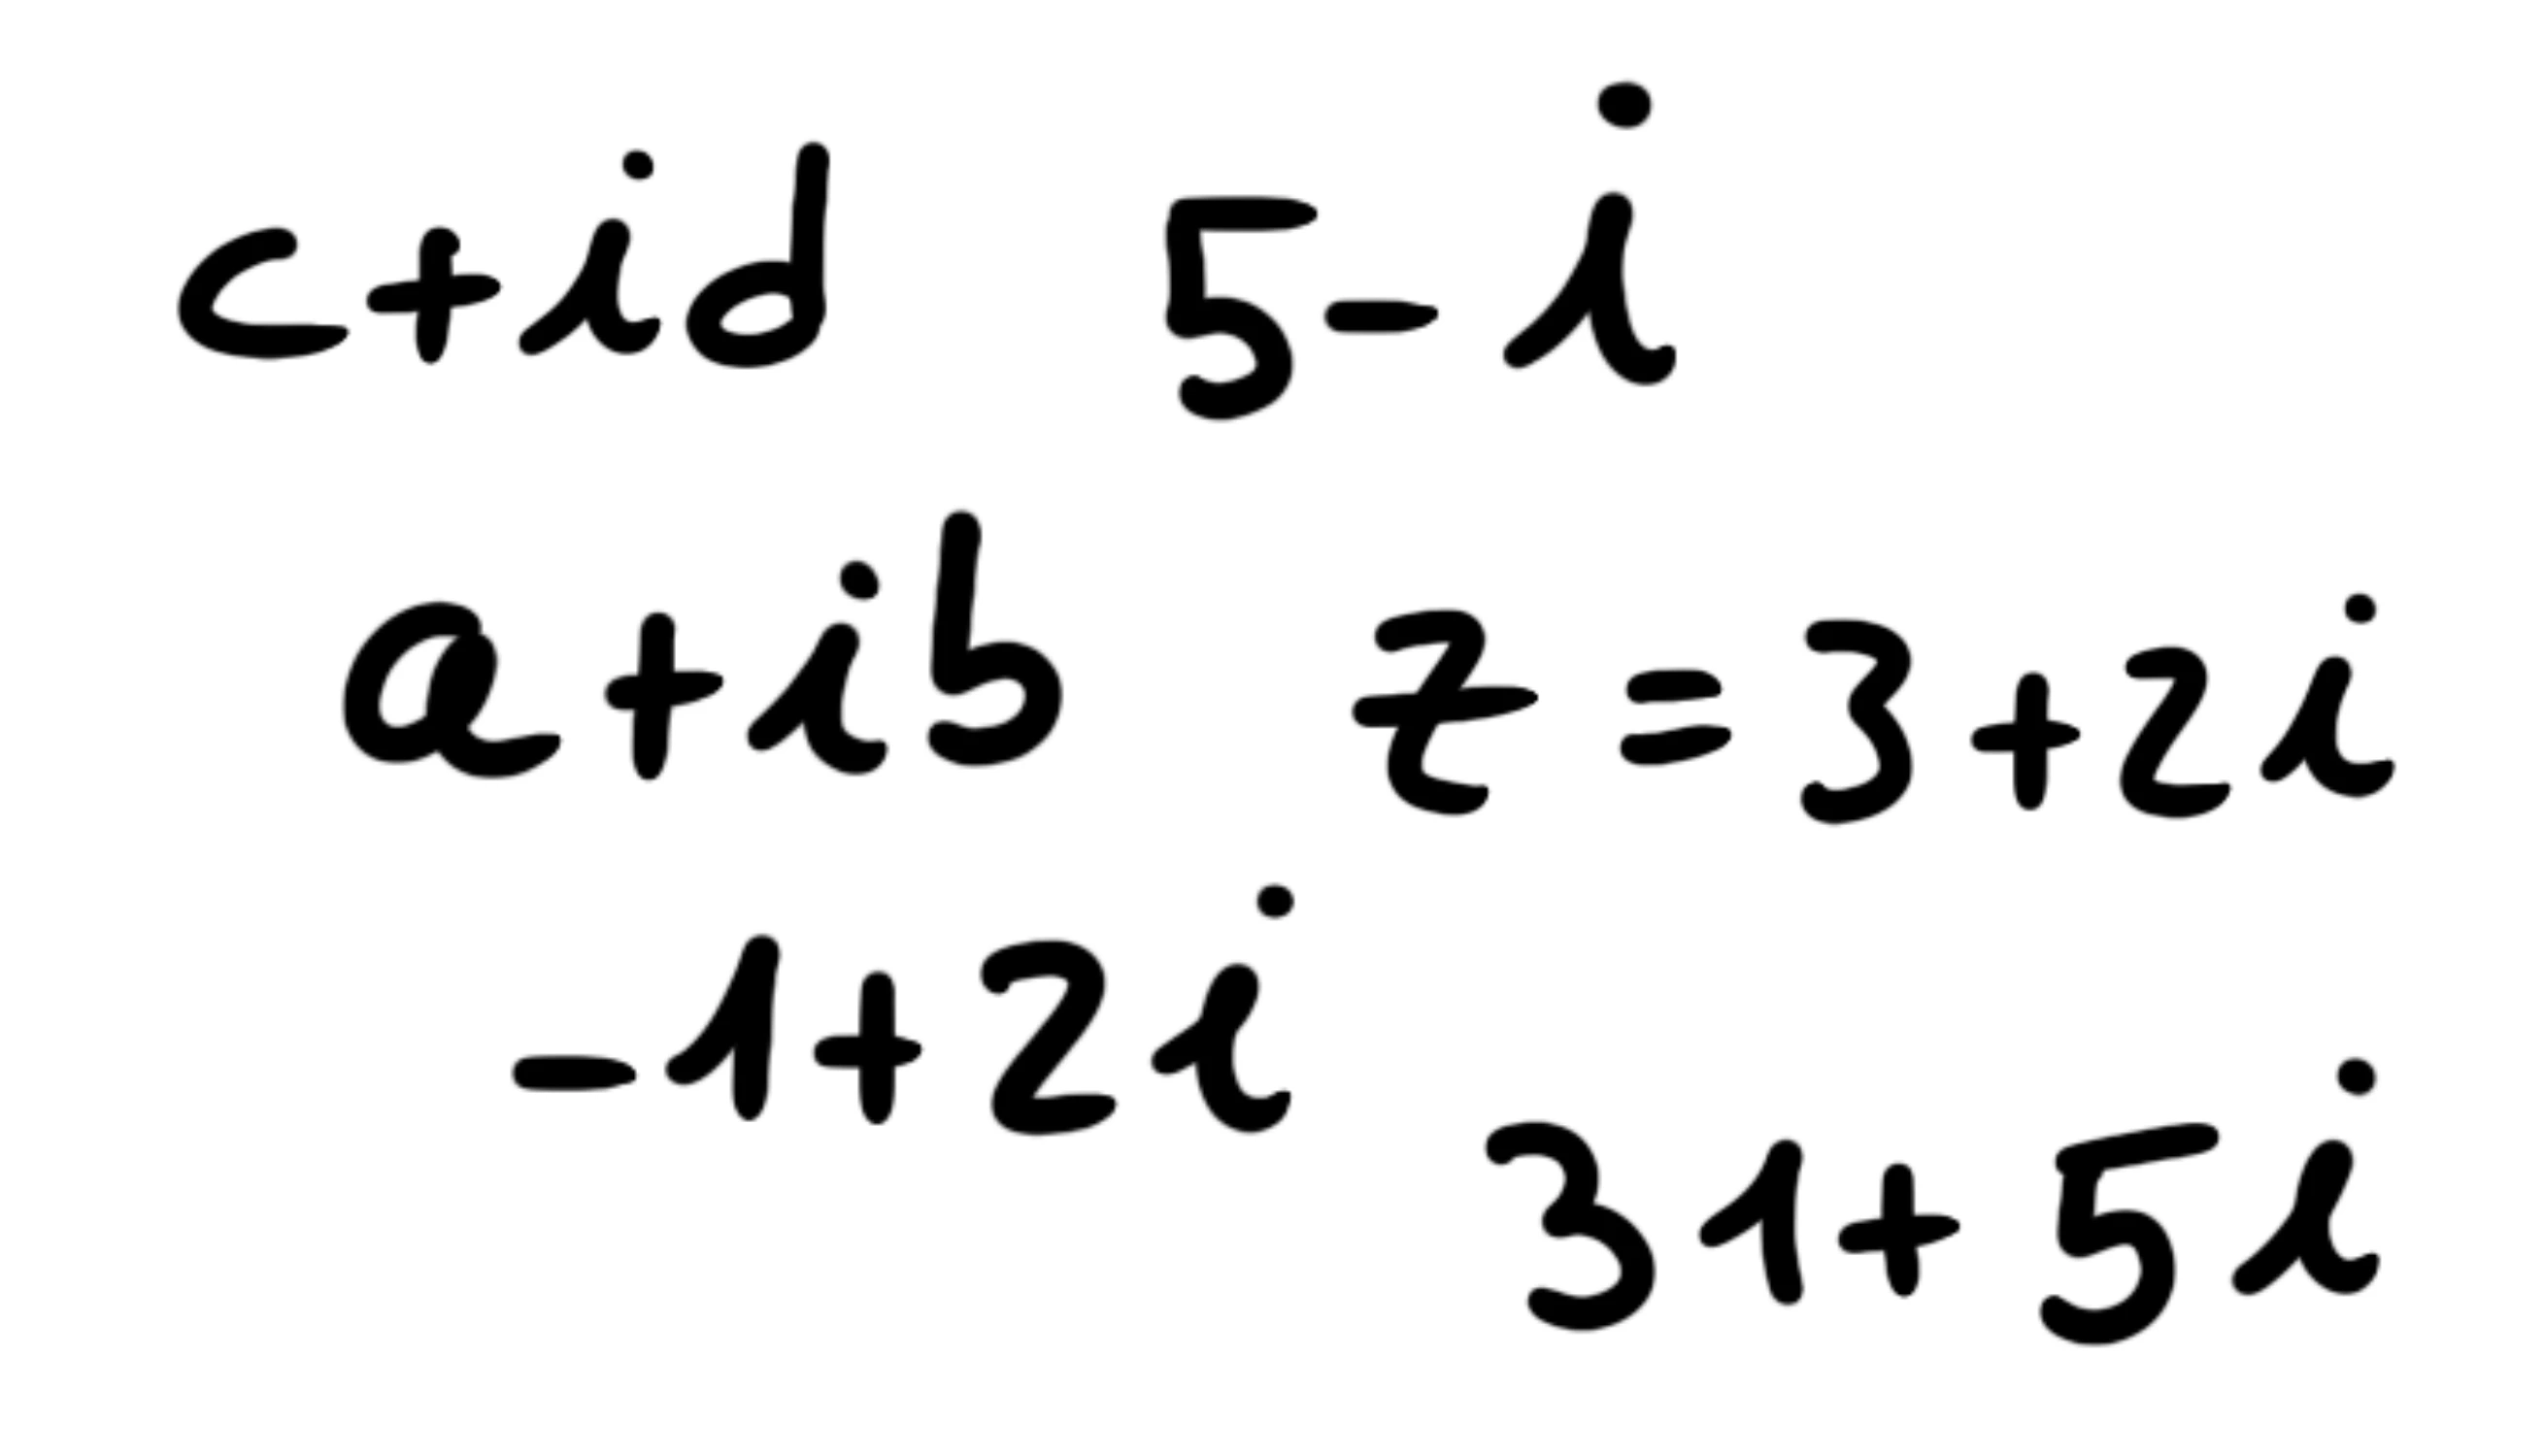 c+id 5-i
a+ib z=3+2i
-1+2i
31+5i